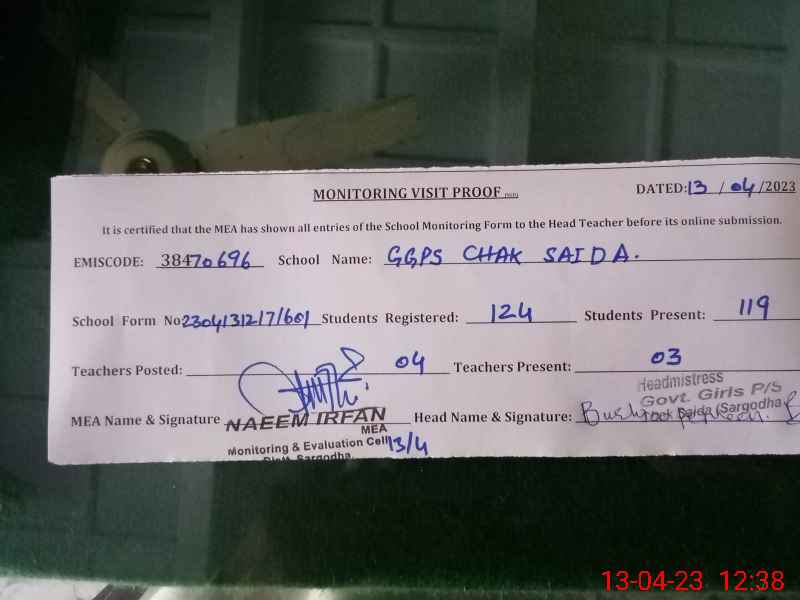 MONITORING VISIT PROOF
DATED: 13 / 04 /2023
It is certified that the MEA has shown all entries of the School Monitoring Form to the Head Teacher before its online submission.
EMISCODE: 38470696 School Name: GGPS CHAK SAIDA.
School Form No 230413121/7/601 Students Registered: 124 Students Present: 119
Teachers Posted: 04 Teachers Present: 03
Headmistress
Govt. Girls P/S
Saida (Sargodha)
MEA Name & Signature NAEEM IRFAN Head Name & Signature: Bushra
MEA
Monitoring & Evaluation Cell 13/4
Distt. Sargodha.
13-04-23 12:38